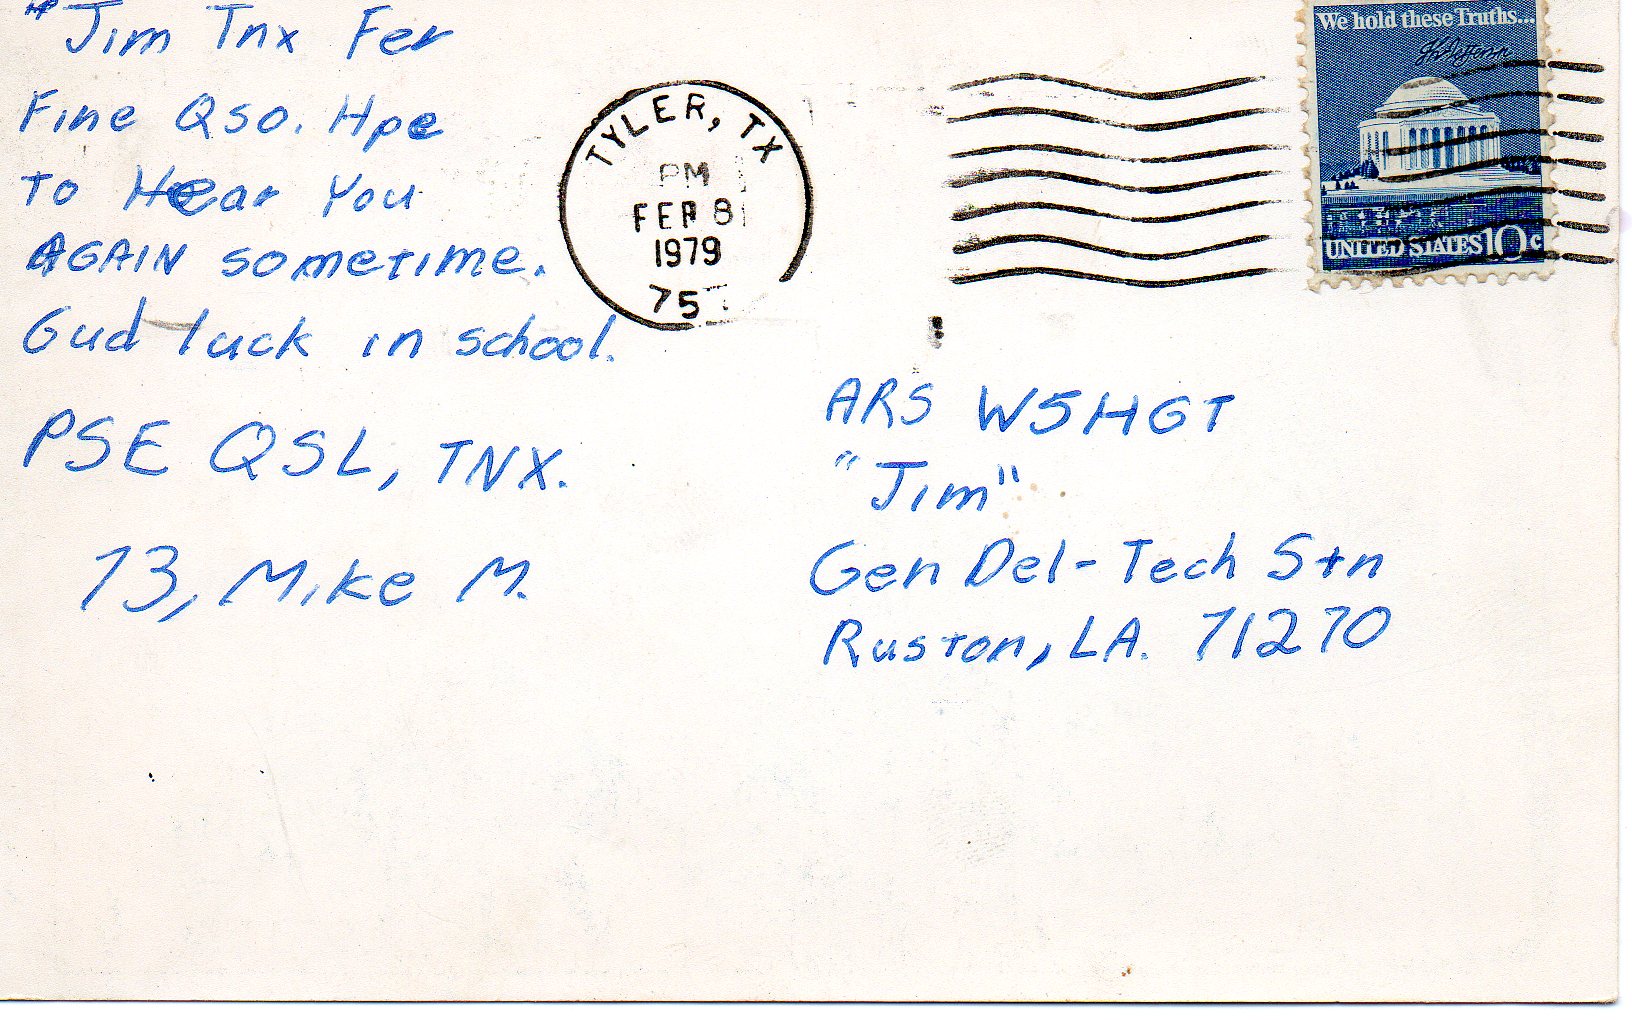 "Jim Tnx Fer
Fine Qso. Hpe
To Hear You
AGAIN sometime.
Gud luck in school.
PSE QSL, TNX.
73, Mike M.
TYLER, TX
PM
FEB 8
1979
75
We hold these Truths...
UNITED STATES 10c
ARS W5HGT
"Jim"
Gen Del-Tech Stn
Ruston, LA. 71270